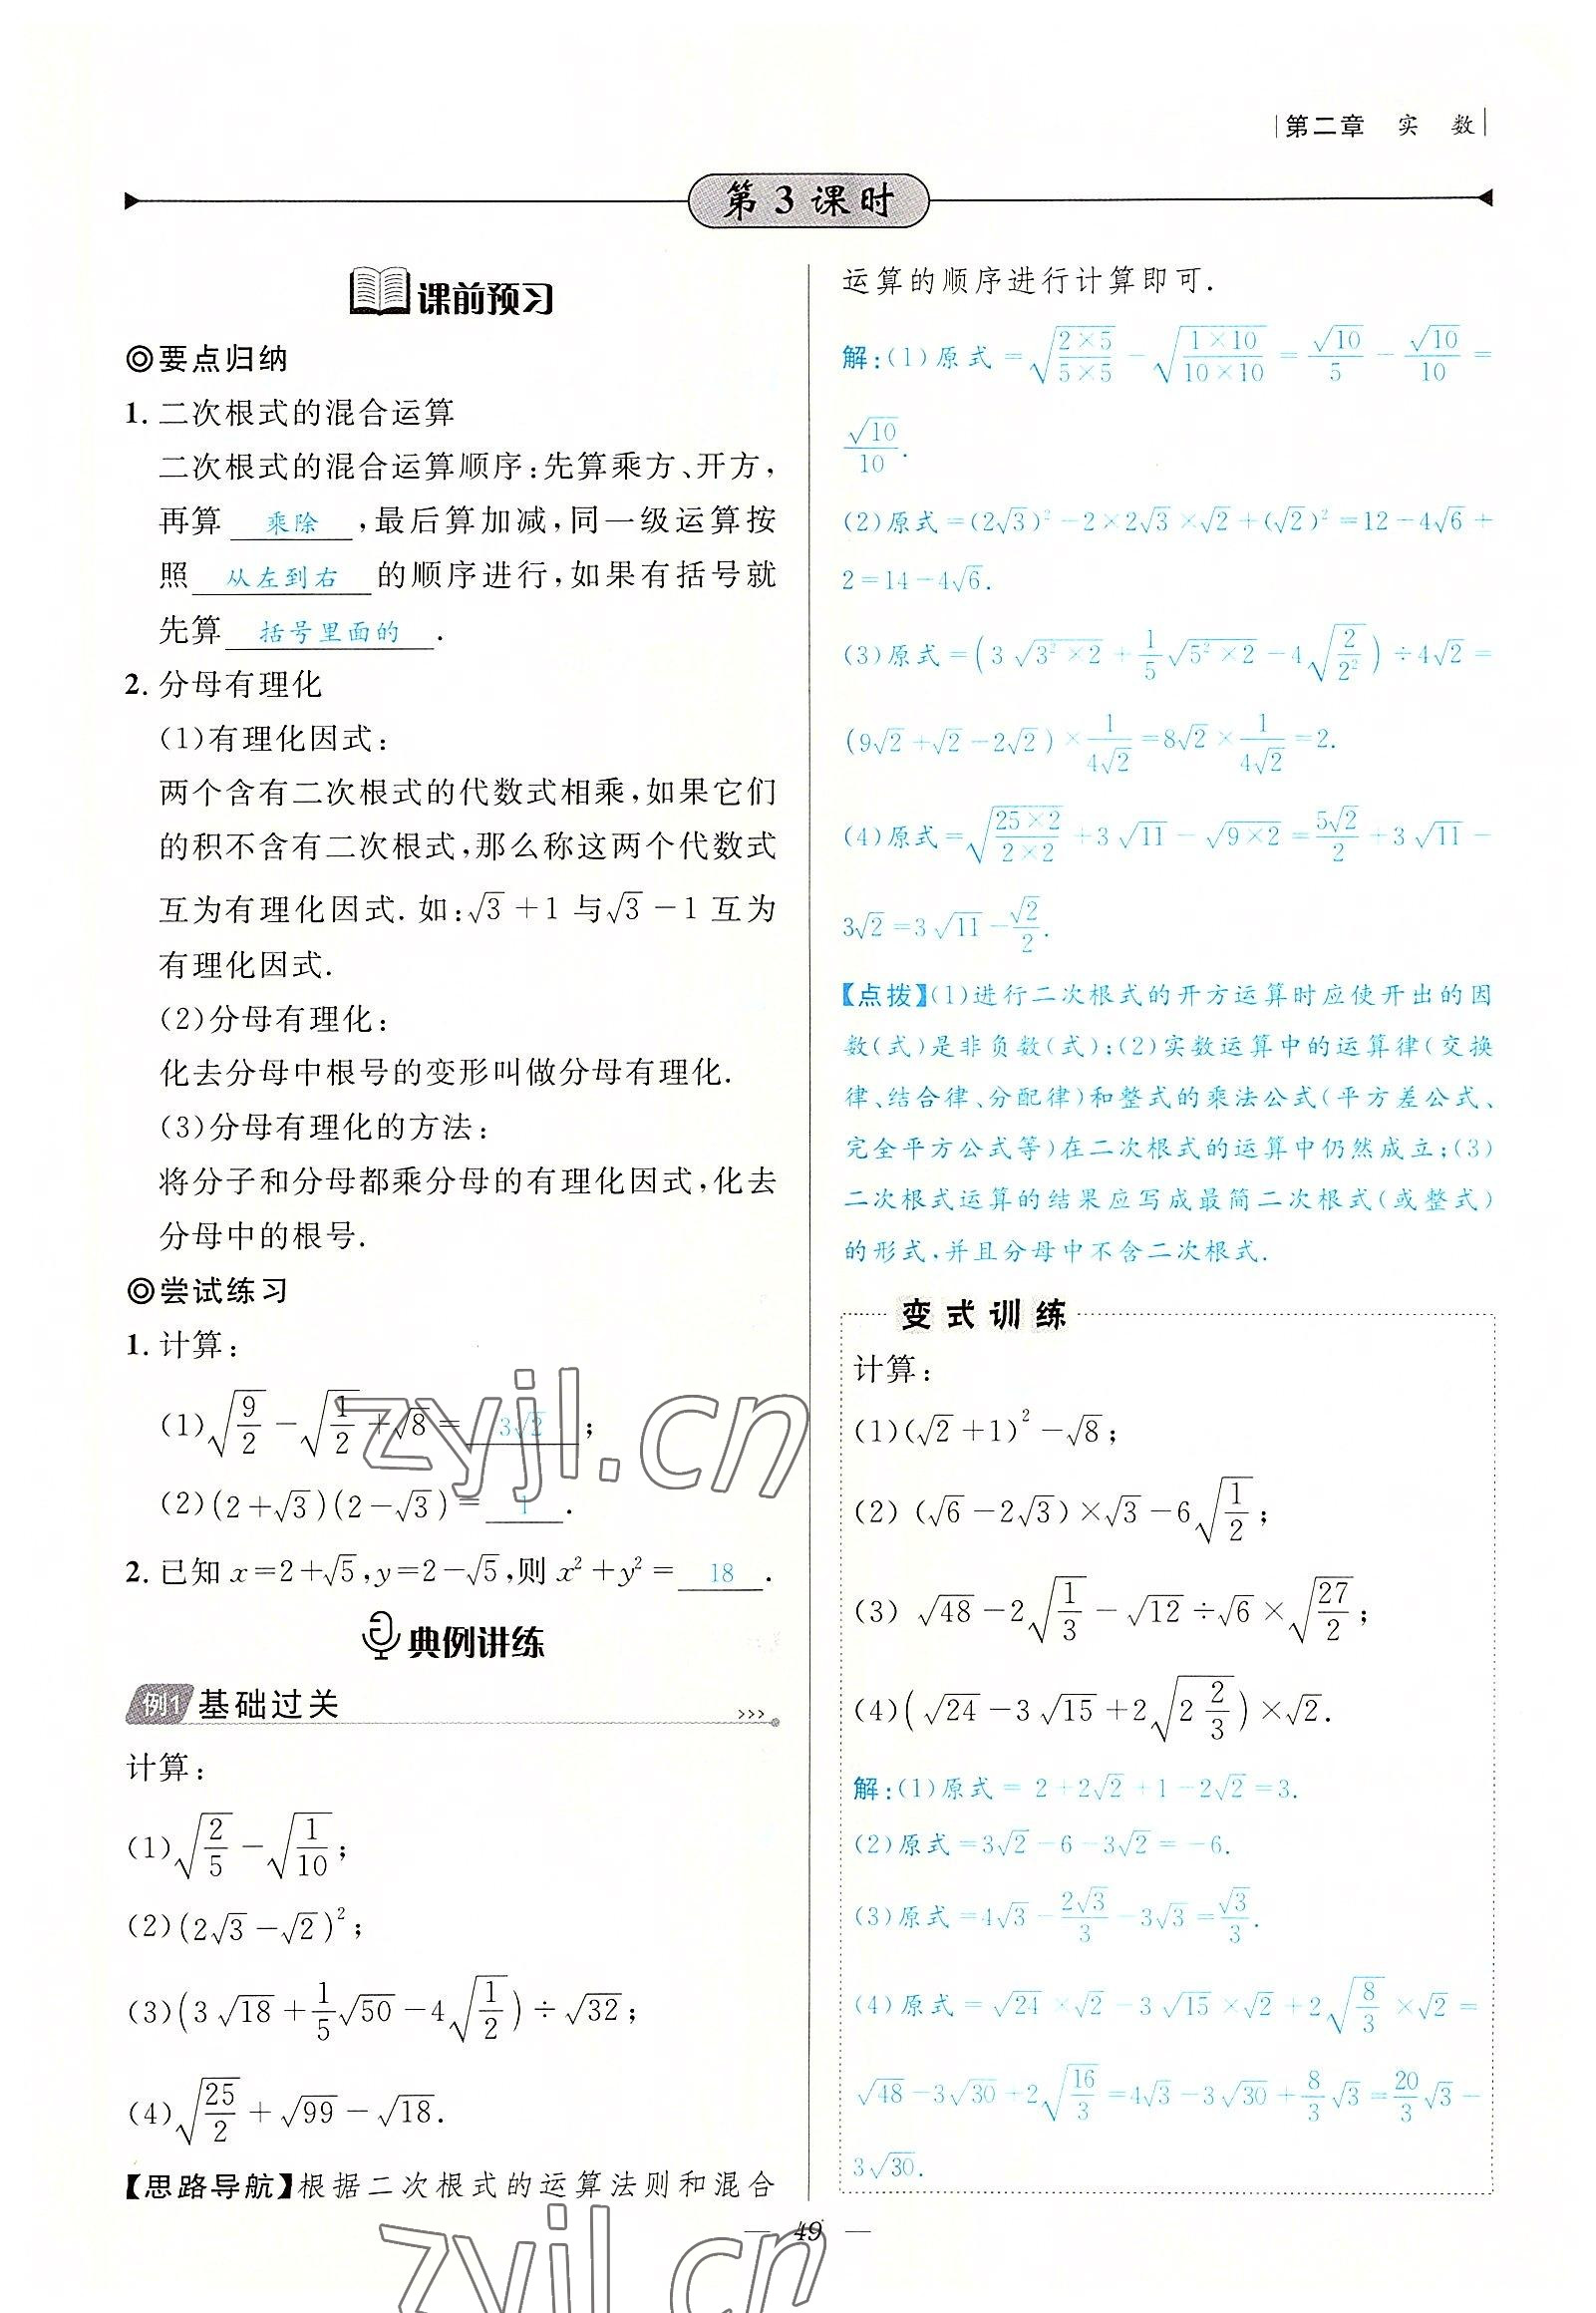 第二章 实 数
第3课时
课前预习
◎要点归纳
1. 二次根式的混合运算
二次根式的混合运算顺序:先算乘方、开方,
再算 乘除 ,最后算加减,同一级运算按
照 从左到右 的顺序进行,如果有括号就
先算 括号里面的 .
2. 分母有理化
(1)有理化因式:
两个含有二次根式的代数式相乘,如果它们
的积不含有二次根式,那么称这两个代数式
互为有理化因式. 如:√3+1与√3-1互为
有理化因式.
(2)分母有理化:
化去分母中根号的变形叫做分母有理化.
(3)分母有理化的方法:
将分子和分母都乘分母的有理化因式,化去
分母中的根号.
◎尝试练习
1. 计算:
(1)√(9/2)-√(1/2)+√8= 3√2 ;
(2)(2+√3)(2-√3)= 1 .
2. 已知x=2+√5,y=2-√5,则x²+y²= 18 .
典例讲练
例1 基础过关 >>>
计算:
(1)√(2/5)-√(1/10);
(2)(2√3-√2)²;
(3)(3√18+1/5√50-4√(1/2))÷√32;
(4)√(25/2)+√99-√18.
【思路导航】根据二次根式的运算法则和混合
运算的顺序进行计算即可.
解:(1)原式=√((2×5)/(5×5))-√((1×10)/(10×10))=√10/5-√10/10=
√10/10.
(2)原式=(2√3)²-2×2√3×√2+(√2)²=12-4√6+
2=14-4√6.
(3)原式=(3√(3²×2)+1/5√(5²×2)-4√(2/2²))÷4√2=
(9√2+√2-2√2)×1/(4√2)=8√2×1/(4√2)=2.
(4)原式=√((25×2)/(2×2))+3√11-√(9×2)=5√2/2+3√11-
3√2=3√11-√2/2.
【点拨】(1)进行二次根式的开方运算时应使开出的因
数(式)是非负数(式);(2)实数运算中的运算律(交换
律、结合律、分配律)和整式的乘法公式(平方差公式、
完全平方公式等)在二次根式的运算中仍然成立;(3)
二次根式运算的结果应写成最简二次根式(或整式)
的形式,并且分母中不含二次根式.
变式训练
计算:
(1)(√2+1)²-√8;
(2)(√6-2√3)×√3-6√(1/2);
(3)√48-2√(1/3)-√12÷√6×√(27/2);
(4)(√24-3√15+2√(2 2/3))×√2.
解:(1)原式=2+2√2+1-2√2=3.
(2)原式=3√2-6-3√2=-6.
(3)原式=4√3-2√3/3-3√3=√3/3.
(4)原式=√24×√2-3√15×√2+2√(8/3)×√2=
√48-3√30+2√(16/3)=4√3-3√30+8/3√3=20/3√3-
3√30.
— 49 —
zyjl.cn
zyjl.cn